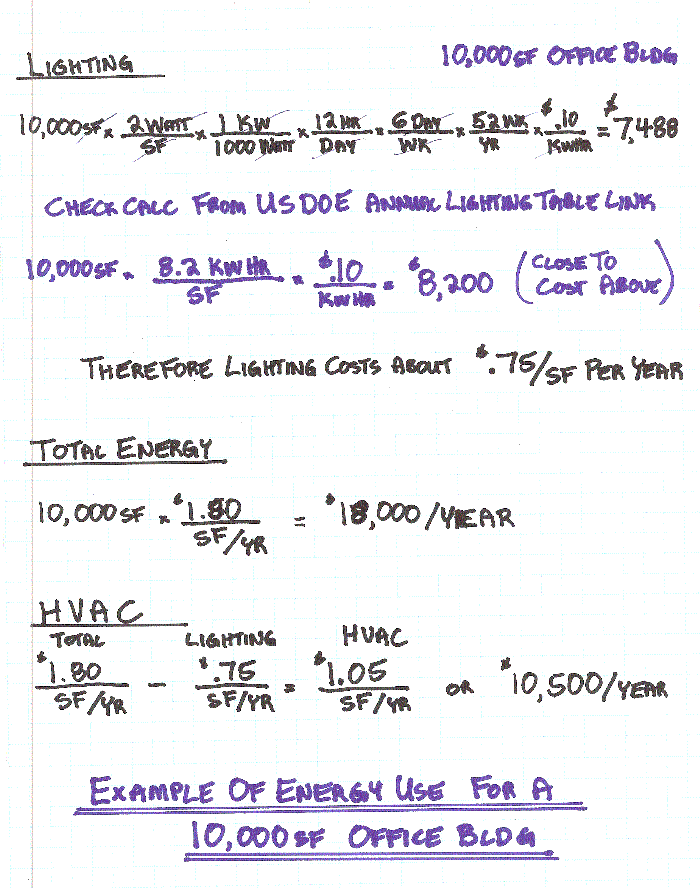 10,000 SF OFFICE BLDG
LIGHTING
10,000 SF x 2 WATT/SF x 1 KW/1000 WATT x 12 HR/DAY x 6 DAY/WK x 52 WK/YR x $.10/KWHR = $7,488
CHECK CALC FROM US DOE ANNUAL LIGHTING TABLE LINK
10,000 SF x 8.2 KWHR/SF x $.10/KWHR = $8,200 (CLOSE TO COST ABOVE)
THEREFORE LIGHTING COSTS ABOUT $.75/SF PER YEAR
TOTAL ENERGY
10,000 SF x $1.80/SF/YR = $18,000/YEAR
HVAC
TOTAL LIGHTING HVAC
$1.80/SF/YR - $.75/SF/YR = $1.05/SF/YR OR $10,500/YEAR
EXAMPLE OF ENERGY USE FOR A
10,000 SF OFFICE BLDG.